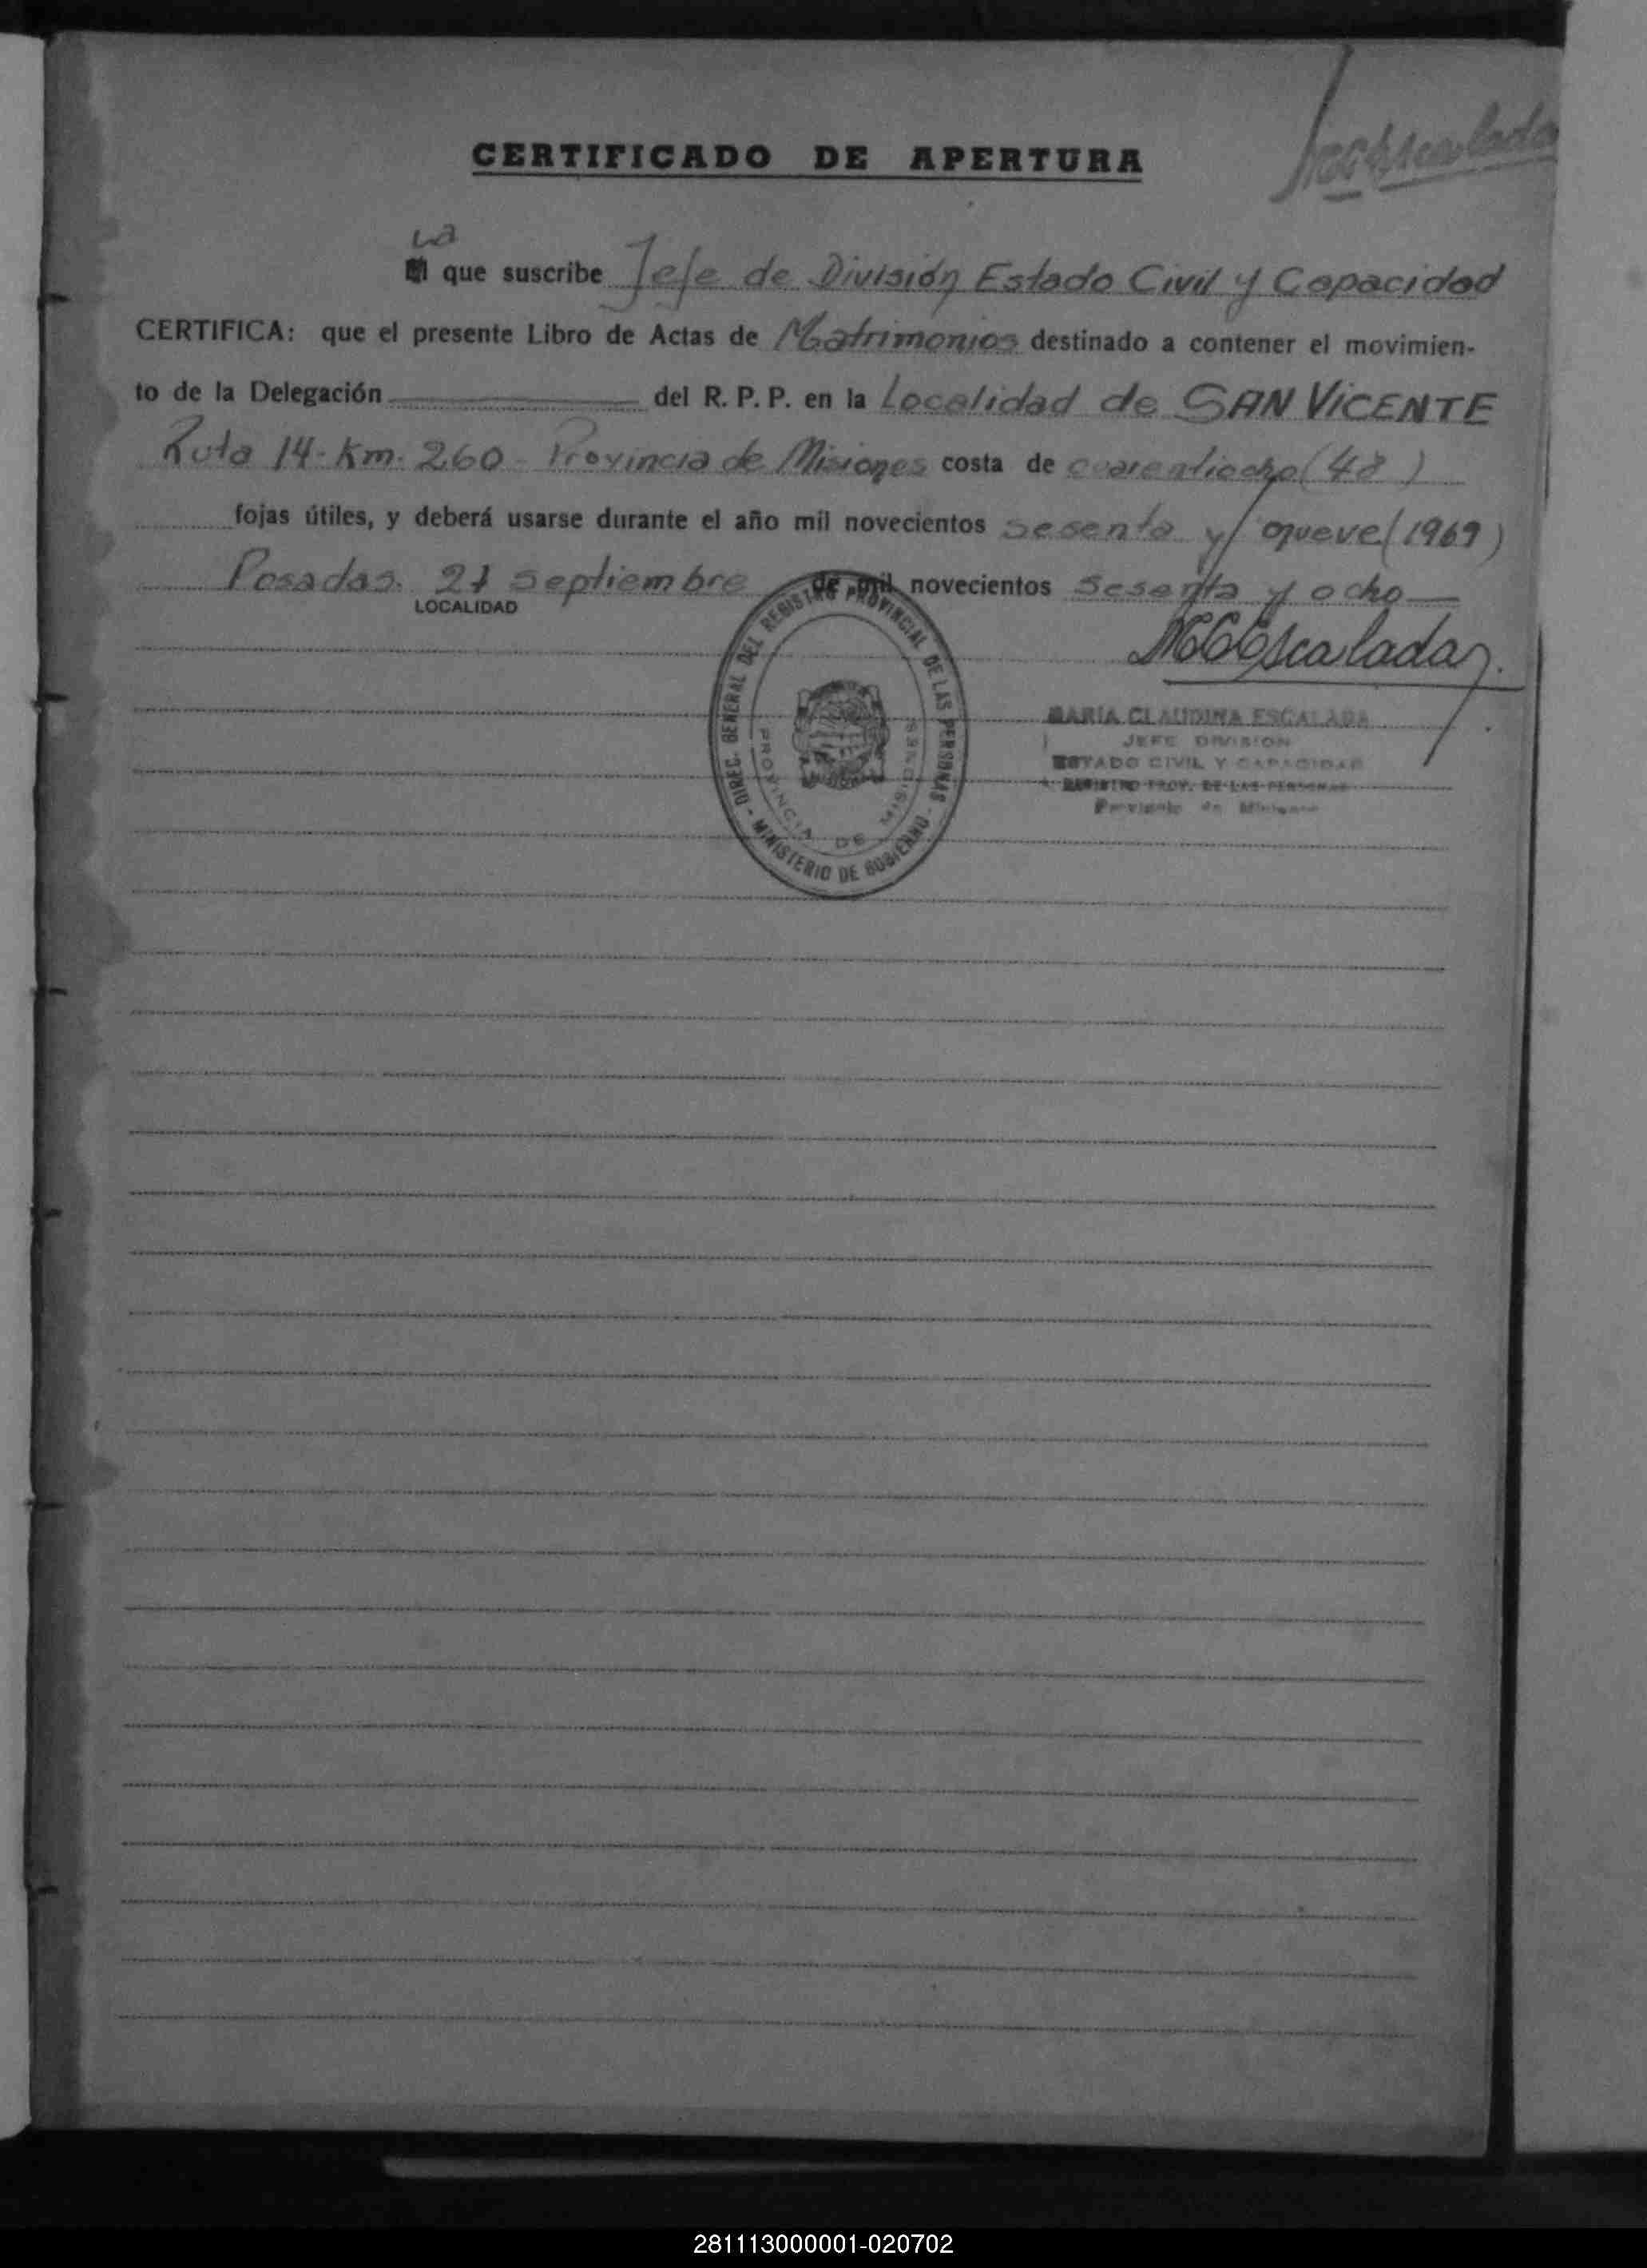 CERTIFICADO DE APERTURA
La
El que suscribe Jefe de División Estado Civil y Capacidad
CERTIFICA: que el presente Libro de Actas de Matrimonios destinado a contener el movimien-
to de la Delegación del R. P. P. en la Localidad de SAN VICENTE
Ruta 14. Km. 260 - Provincia de Misiones costa de cuarentiocho (48)
fojas útiles, y deberá usarse durante el año mil novecientos sesenta y nueve (1969)
Posadas. septiembre de mil novecientos sesenta y ocho
LOCALIDAD
Escalada
DIREC. GENERAL DEL REGISTRO PROVINCIAL DE LAS PERSONAS - MINISTERIO DE GOBIERNO -
PROVINCIA DE MISIONES
MARÍA CLAUDINA ESCALADA
JEFE DIVISION
ESTADO CIVIL Y CAPACIDAD
REGISTRO PROV. DE LAS PERSONAS
Provincia de Misiones
281113000001-020702